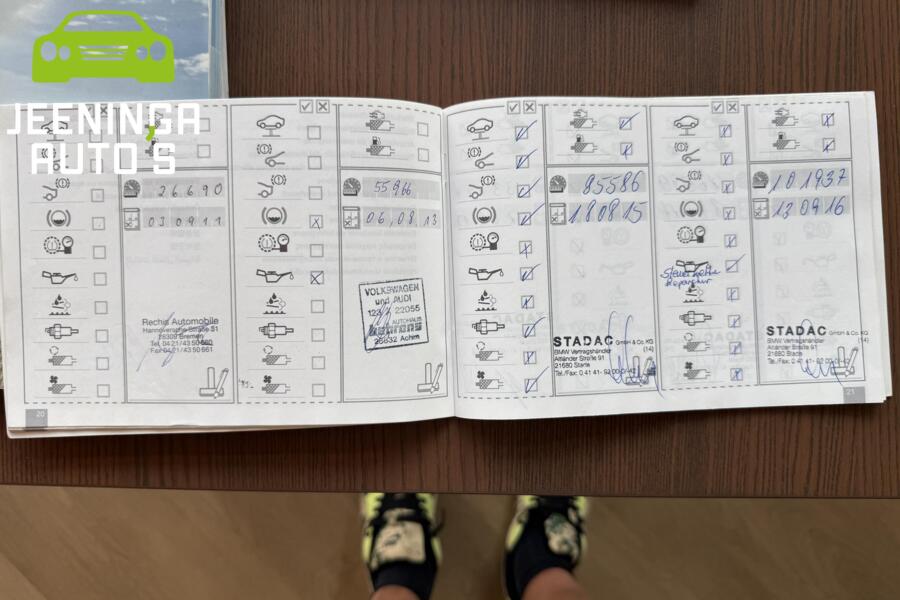 JEENINGA
AUTO'S
26690
030911
Rechis Automobile
Hannoversche Straße 51
28309 Bremen
Tel. 04 21/43 50 660
Fax 04 21/43 50 661
20
55966
06,08,13
VOLKSWAGEN
und AUDI
22055
AUTOHAUS
Behrens
28832 Achim
85586
180815
STADAC GmbH & Co. KG
BMW Vertragshändler (14)
Altländer Straße 91
21680 Stade
Steuerkette
Reparatur
101937
120916
STADAC GmbH & Co. KG
BMW Vertragshändler (14)
Altländer Straße 91
21680 Stade
21